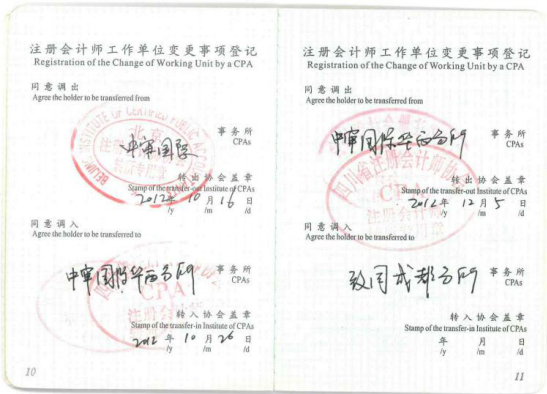 注册会计师工作单位变更事项登记
Registration of the Change of Working Unit by a CPA
同意调出
Agree the holder to be transferred from
中审国际 事务所
CPAs
转出协会盖章
Stamp of the transfer-out Institute of CPAs
2012年 10月 16日
/y /m /d
同意调入
Agree the holder to be transferred to
中审国际华西分所 事务所
CPAs
转入协会盖章
Stamp of the transfer-in Institute of CPAs
2012年 10月 26日
/y /m /d
10
注册会计师工作单位变更事项登记
Registration of the Change of Working Unit by a CPA
同意调出
Agree the holder to be transferred from
中审国际华西分所 事务所
CPAs
四川省注册会计师协会
转出协会盖章
Stamp of the transfer-out Institute of CPAs
2012年 12月 5日
/y /m /d
同意调入
Agree the holder to be transferred to
致同成都分所 事务所
CPAs
转入协会盖章
Stamp of the transfer-in Institute of CPAs
年 月 日
/y /m /d
11